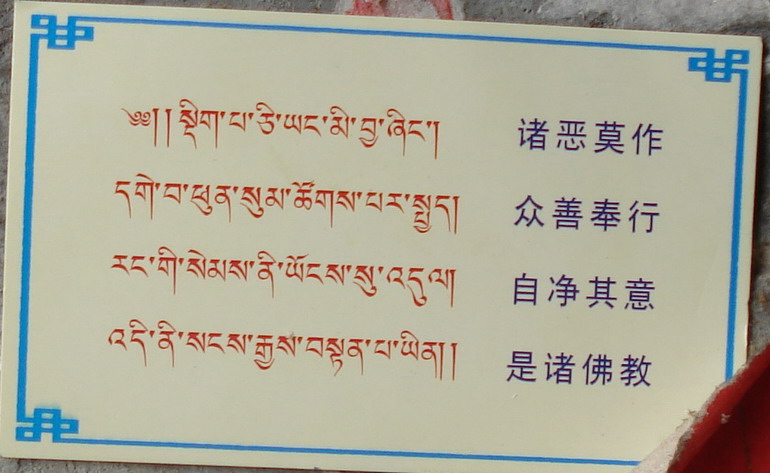 ༄༅།། སྡིག་པ་ཅི་ཡང་མི་བྱ་ཞིང་། 诸恶莫作
དགེ་བ་ཕུན་སུམ་ཚོགས་པར་སྤྱད། 众善奉行
རང་གི་སེམས་ནི་ཡོངས་སུ་འདུལ། 自净其意
འདི་ནི་སངས་རྒྱས་བསྟན་པ་ཡིན།། 是诸佛教